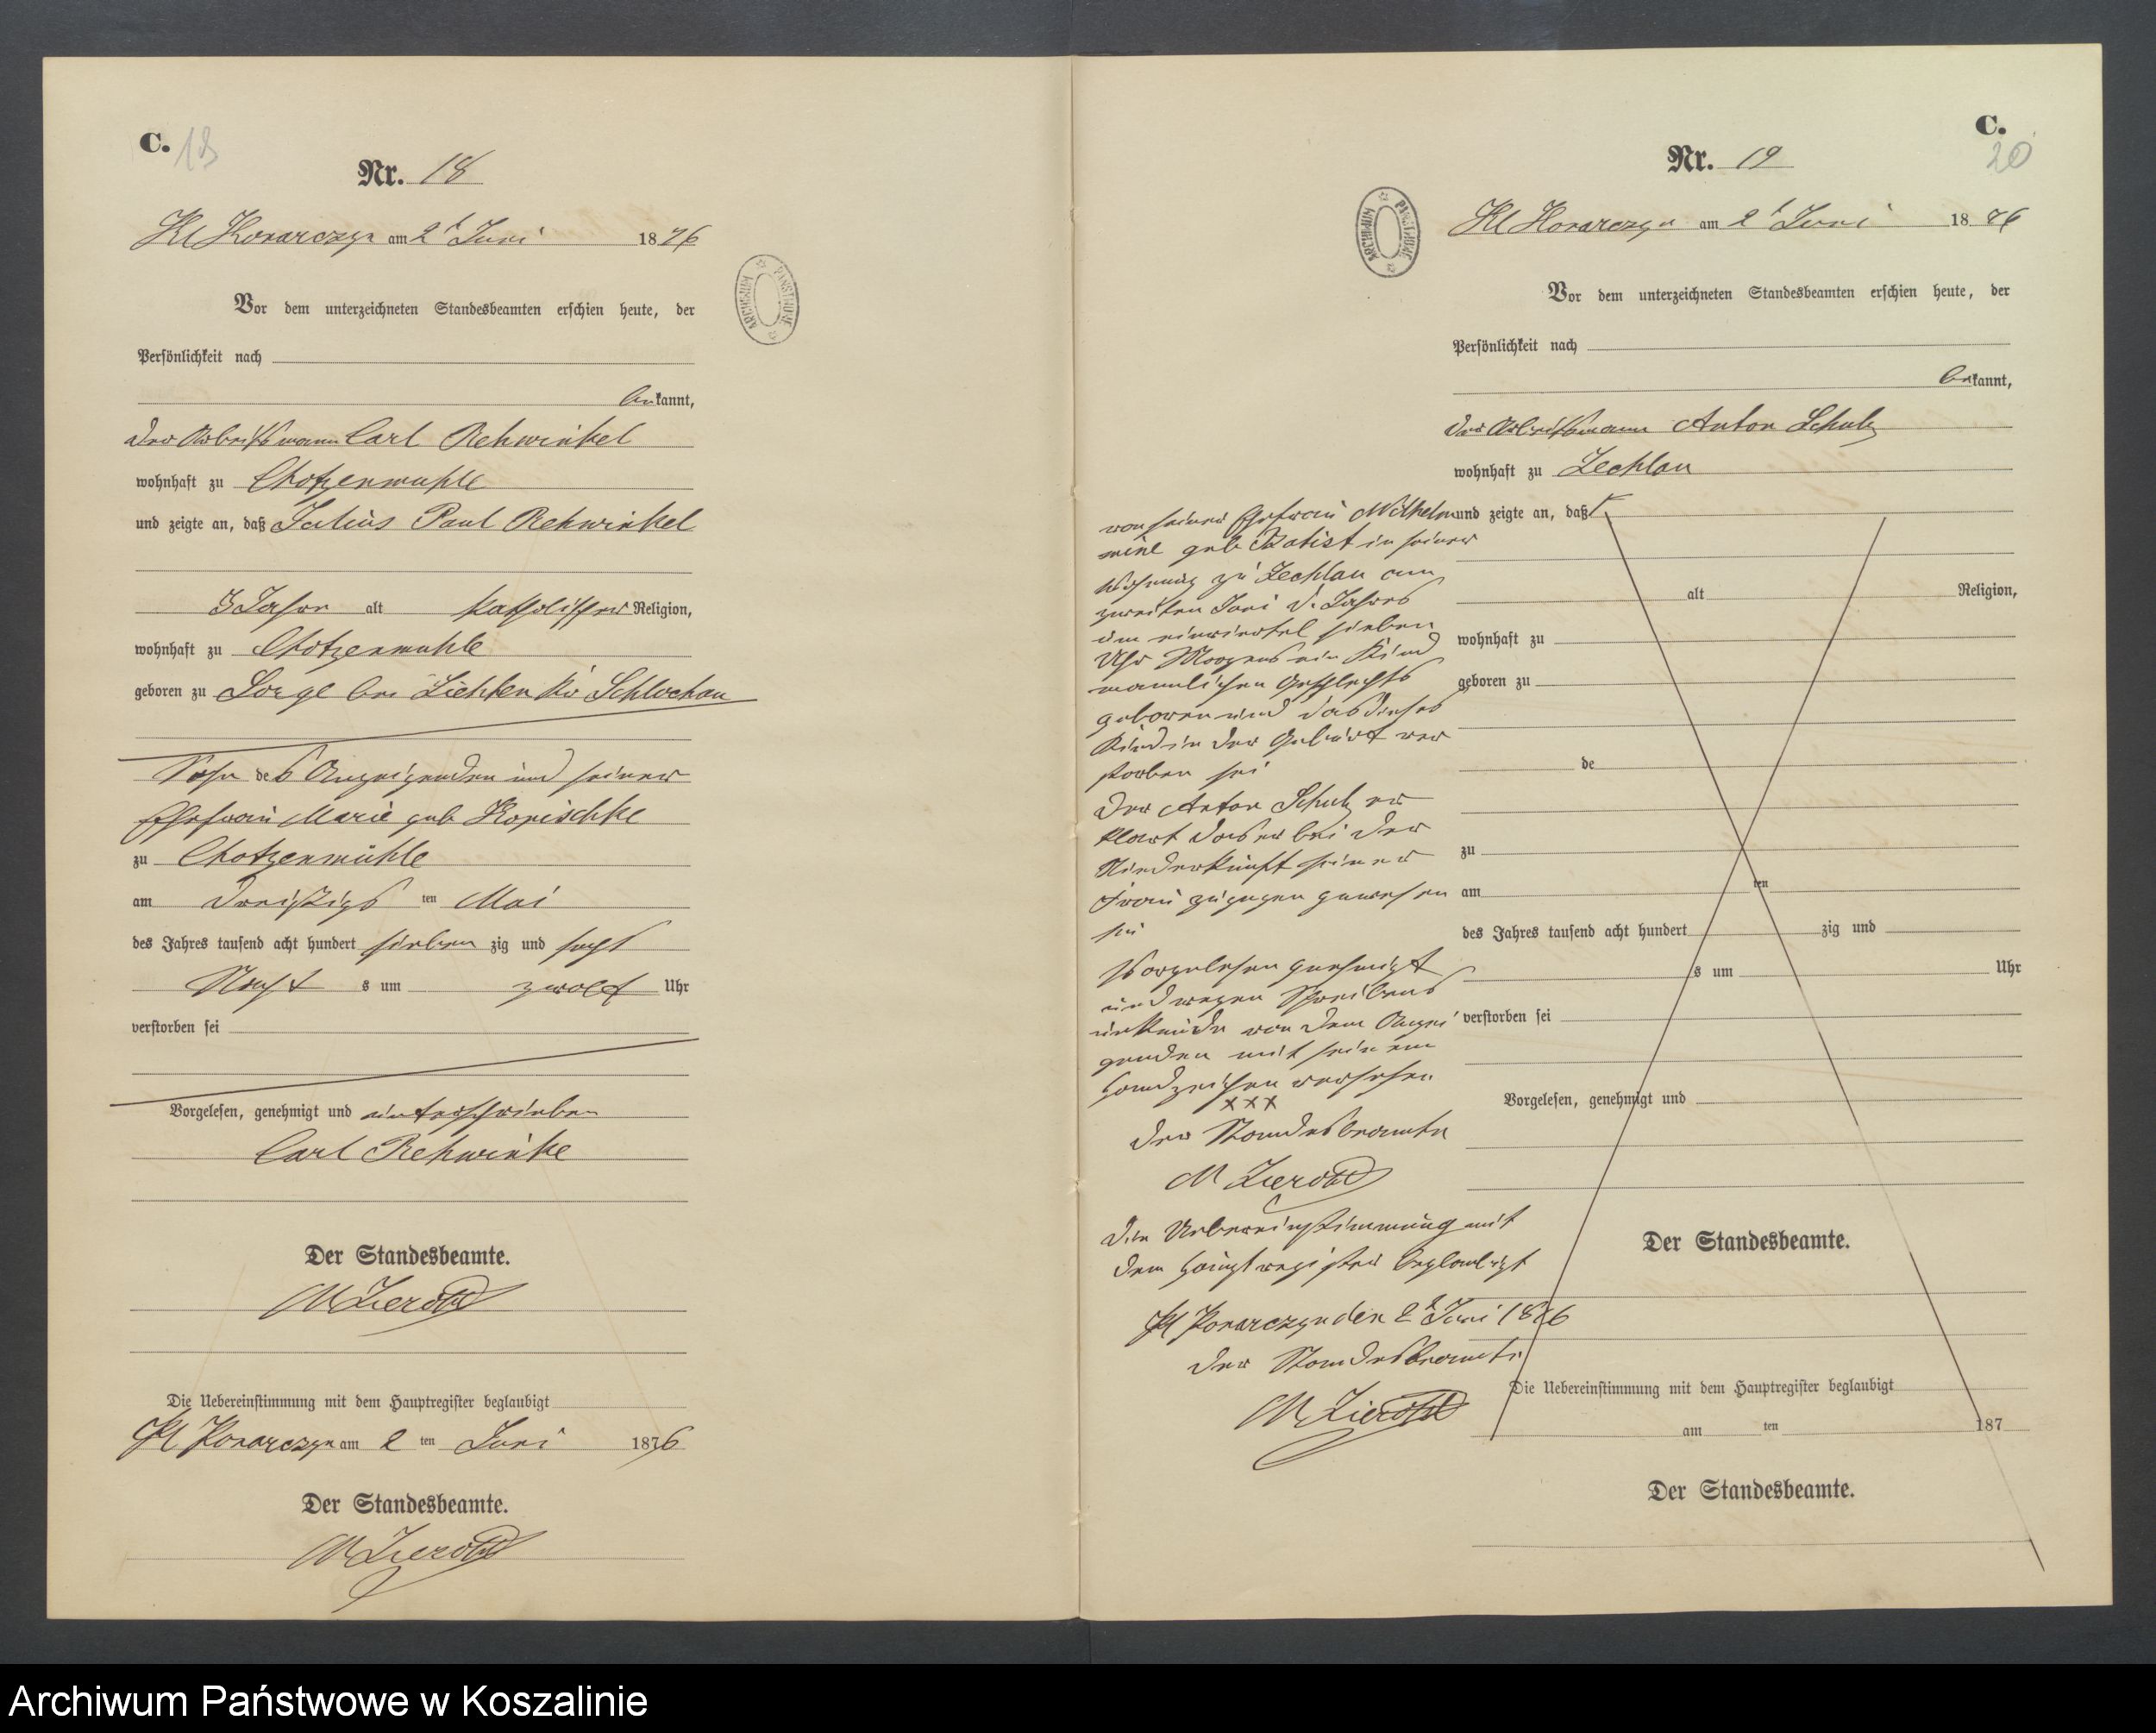 C. 18
Nr. 18
Kl Konarczyn am 2t Juni 1876
Vor dem unterzeichneten Standesbeamten erschien heute, der
Persönlichkeit nach
bekannt,
der Arbeitsmann Carl Rehwinkel
wohnhaft zu Chotzenmuhle
und zeigte an, daß Julius Paul Rehwinkel
3 Jahr alt katholischer Religion,
wohnhaft zu Chotzenmuhle
geboren zu Sorge bei Kr Schlochau
Sohn des Anzeigenden und seiner
Ehefrau Marie geb Kopischke
zu Chotzenmühle
am dreißigs ten Mai
des Jahres tausend acht hundert sieben zig und sechs
Nacht s um zwolf Uhr
verstorben sei
Vorgelesen, genehmigt und unterschrieben
Carl Rehwinke
Der Standesbeamte.
Die Uebereinstimmung mit dem Hauptregister beglaubigt
Kl Konarczyn am 2 ten Juni 1876
Der Standesbeamte.
C.
20
Nr. 19
Kl Konarczyn am 2t Juni 1876
ARCHIWUM PAŃSTWOWE
Vor dem unterzeichneten Standesbeamten erschien heute, der
Persönlichkeit nach
bekannt,
der Arbeitsmann Anton Schulz
wohnhaft zu Zechlau
und zeigte an, daß
von seiner Ehefrau Wilhelm
mine geb in seiner
Wohnung zu Zechlau am
zweiten Juni d. Jahres
um einviertel sieben
Uhr Morgens ein Kind
mannlichen Geschlechts
geboren und das dieses
Kind in der Geburt ver
storben sei
Der Anton Schulz er
klart das er bei der
Niederkunft seiner
Frau zugegen gewesen
sei
Vorgelesen genehmigt
und wegen Schreibens
unkunde von dem Anzei
genden mit seinem
Handzeichen versehen
XXX
Der Standesbeamte
Die Uebereinstimmung mit
dem Hauptregister beglaubigt
Kl Konarczyn den 2t Juni 1876
Der Standesbeamte
alt Religion,
wohnhaft zu
geboren zu
de
zu
am ten
des Jahres tausend acht hundert zig und
s um Uhr
verstorben sei
Vorgelesen, genehmigt und
Der Standesbeamte.
Die Uebereinstimmung mit dem Hauptregister beglaubigt
am ten 187
Der Standesbeamte.
Archiwum Państwowe w Koszalinie